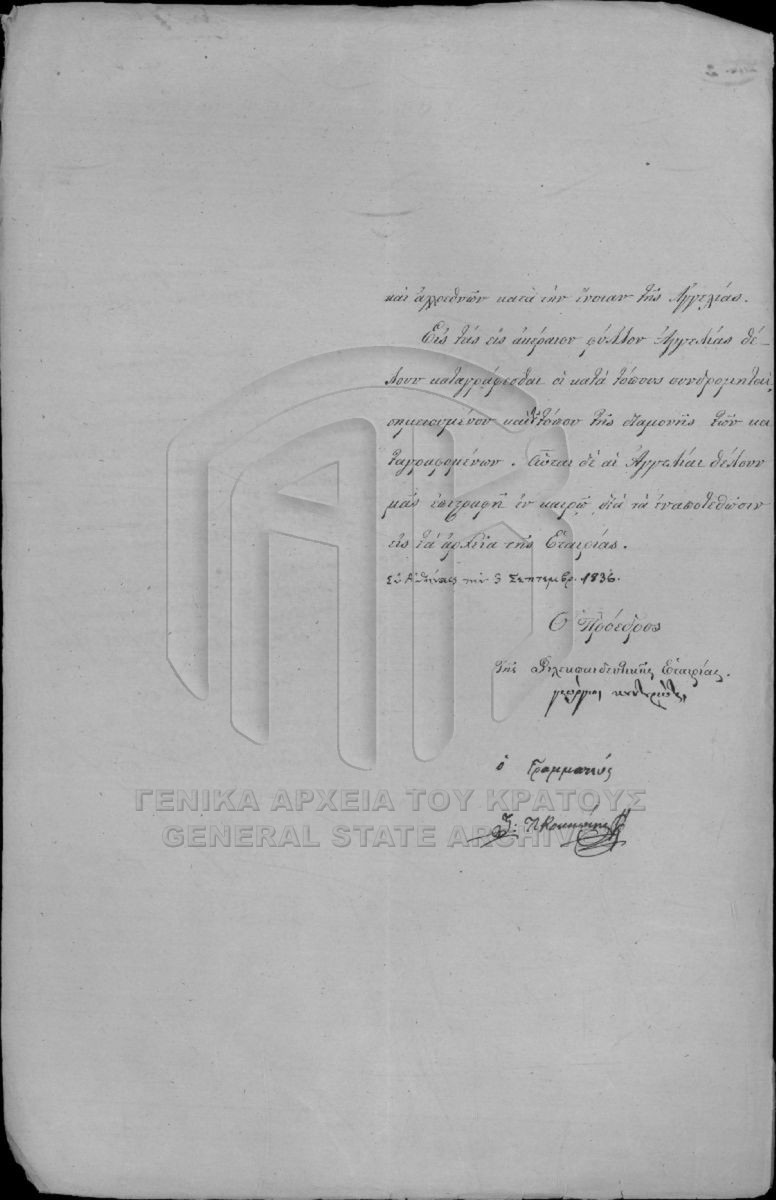 καὶ ἀλλοεθνῶν κατὰ τὴν ἔννοιαν τῆς Ἀγγελίας.
Εἰς τὰς εἰς ἀκέραιον φύλλον Ἀγγελίας θέ-
λουν καταγράφεσθαι οἱ κατὰ τόπους συνδρομηταὶ,
σημειουμένου καὶ τοῦ τόπου τῆς διαμονῆς τῶν κα
ταγραφομένων. Αὗται δὲ αἱ Ἀγγελίαι θέλουν
μᾶς ἐπιστραφῆ ἐν καιρῷ, διὰ νὰ ἐναποτεθῶσιν
εἰς τὰ ἀρχεῖα τῆς Ἑταιρίας.
Ἐν Ἀθήναις τὴν 3 Σεπτεμβρ. 1836.
Ὁ Πρόεδρος
τῆς Φιλεκπαιδευτικῆς Ἑταιρίας.
γεώργιος κουντουριώτης
ὁ Γραμματεύς
Ἰ. Π. Κοκκώνης
ΓΕΝΙΚΑ ΑΡΧΕΙΑ ΤΟΥ ΚΡΑΤΟΥΣ
GENERAL STATE ARCHIVES